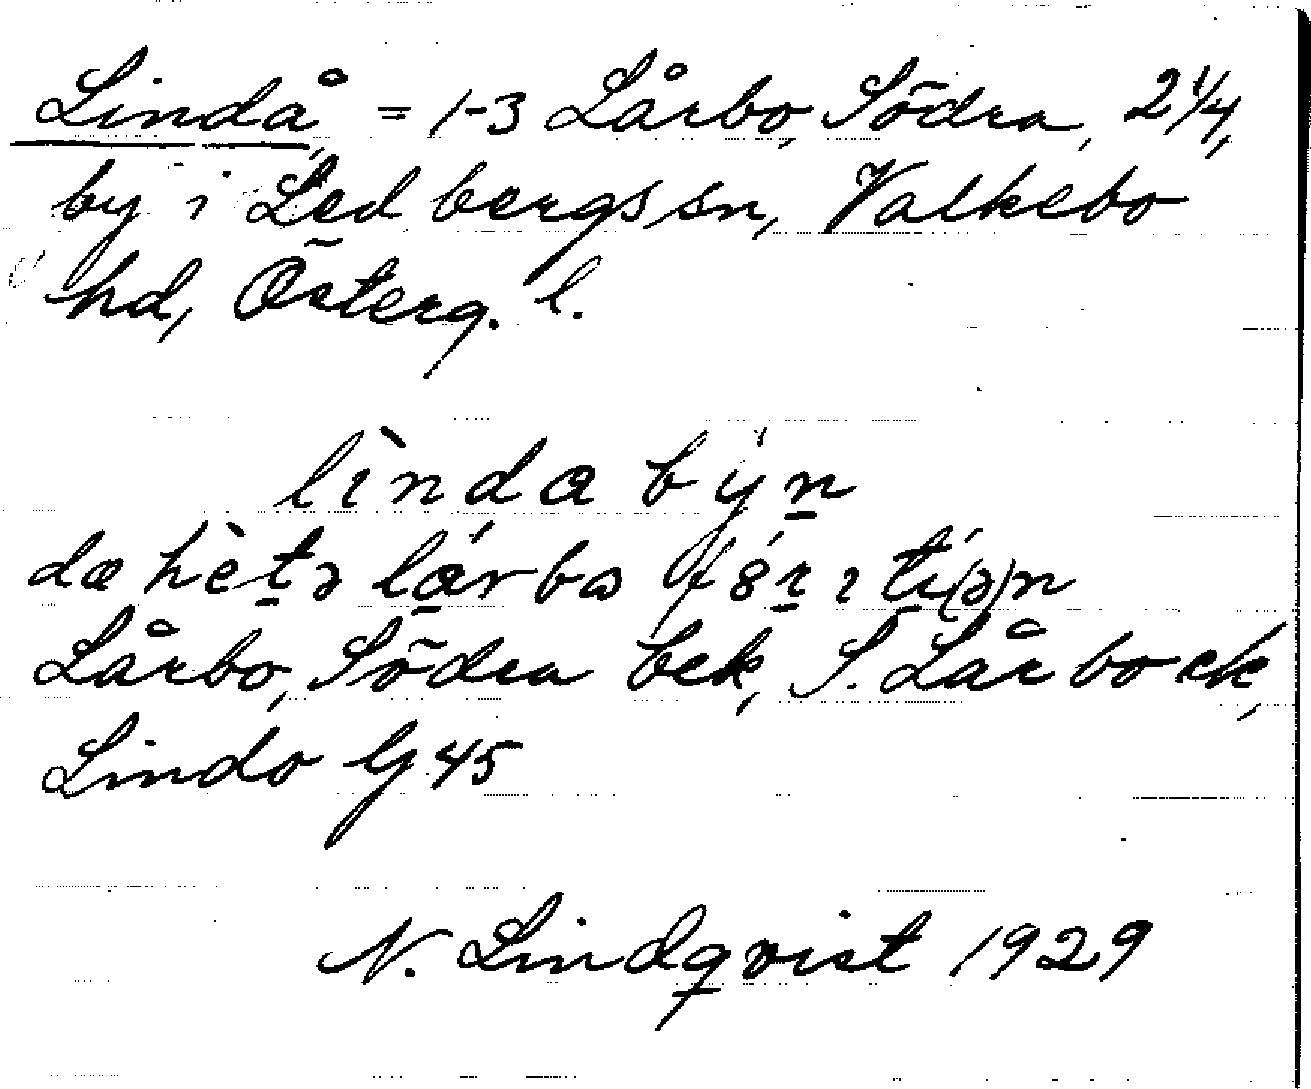 Lindå, = 1-3 Lårbo, Södra, 2 1/4,
by i Ledbergs sn, Valkebo
hd, Österg. l.
lìnda býn
dæ hètə lárba fö́r i tí(ə)n
Lårbo, Södra bek, S. Lårbo ek,
Lindo G 45
N. Lindqvist 1929